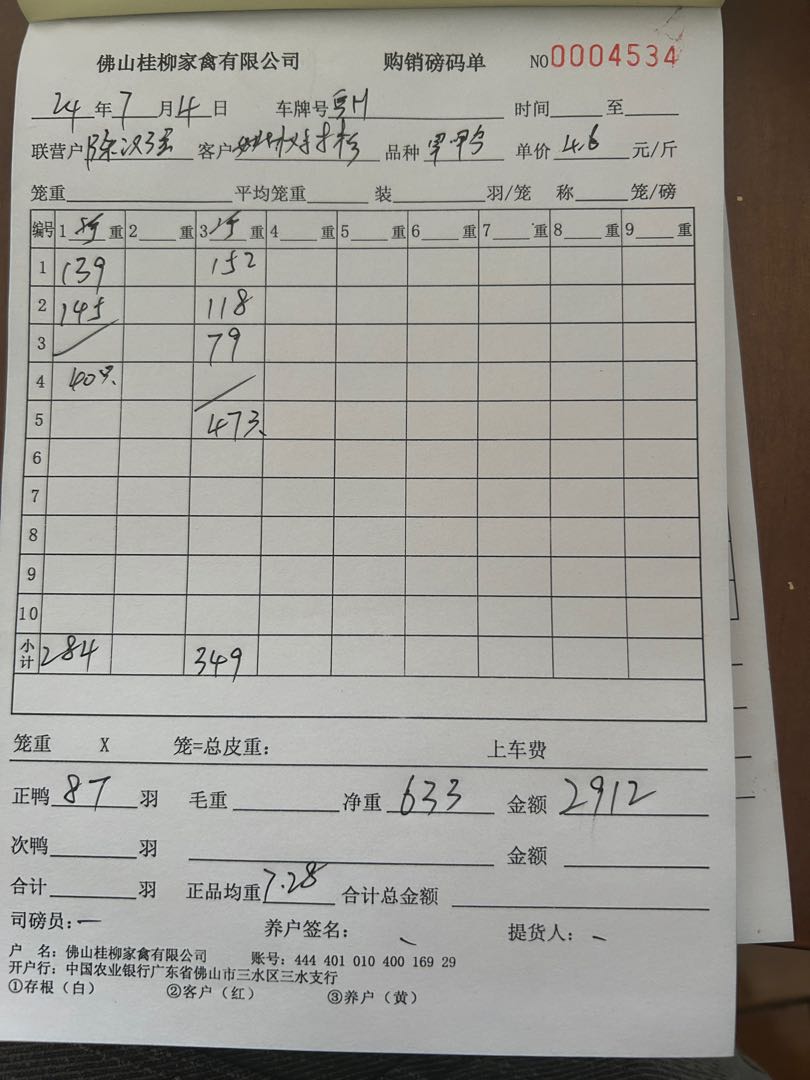 佛山桂柳家禽有限公司 购销磅码单 NO 0004534
24年7月4日 车牌号 粤H 时间 至
联营户 陈次强 客户 品种 单价 4.6 元/斤
笼重 平均笼重 装 羽/笼 称 笼/磅
编号 1 重 2 重 3 重 4 重 5 重 6 重 7 重 8 重 9 重
1 139 152
2 145 118
3 79
4 40只
5 473
6
7
8
9
10
小计 284 349
笼重 X 笼=总皮重: 上车费
正鸭 87 羽 毛重 净重 633 金额 2912
次鸭 羽 金额
合计 羽 正品均重 7.28 合计总金额
司磅员: 养户签名: 提货人:
户 名: 佛山桂柳家禽有限公司 账号: 444 401 010 400 169 29
开户行: 中国农业银行广东省佛山市三水区三水支行
①存根(白) ②客户(红) ③养户(黄)